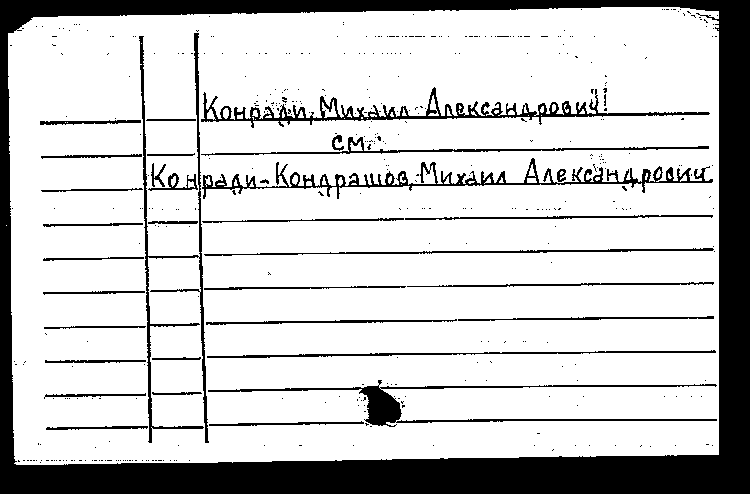 Конради, Михаил Александрович!
см.:
Конради-Кондрашов, Михаил Александрович